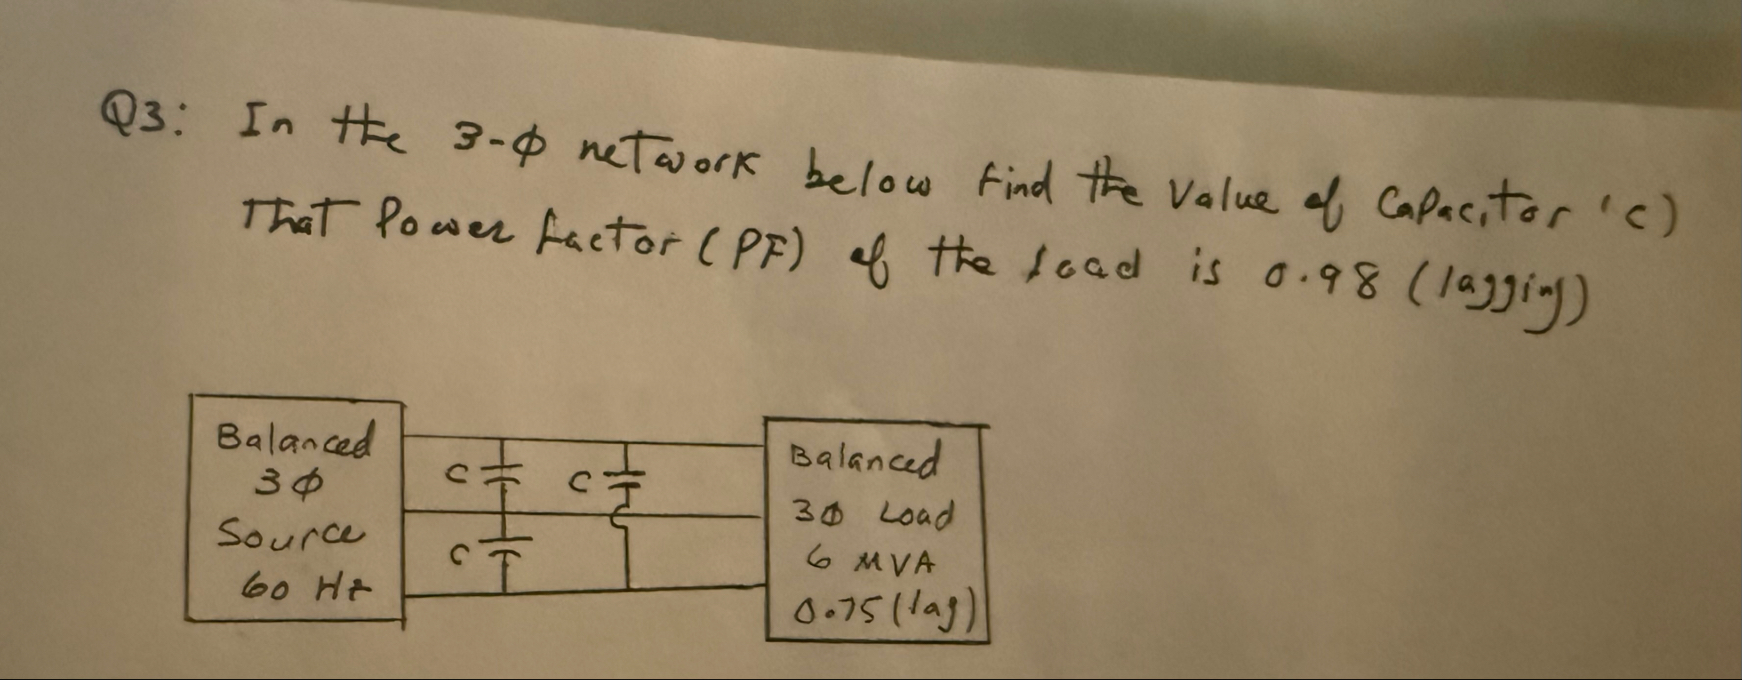 Q3: In the 3-ϕ network below find the value of Capacitor 'C)
That Power factor (PF) of the load is 0.98 (lagging)
Balanced
3ϕ
Source
60 Hz
C
C
C
Balanced
3ϕ Load
6 MVA
0.75 (lag)